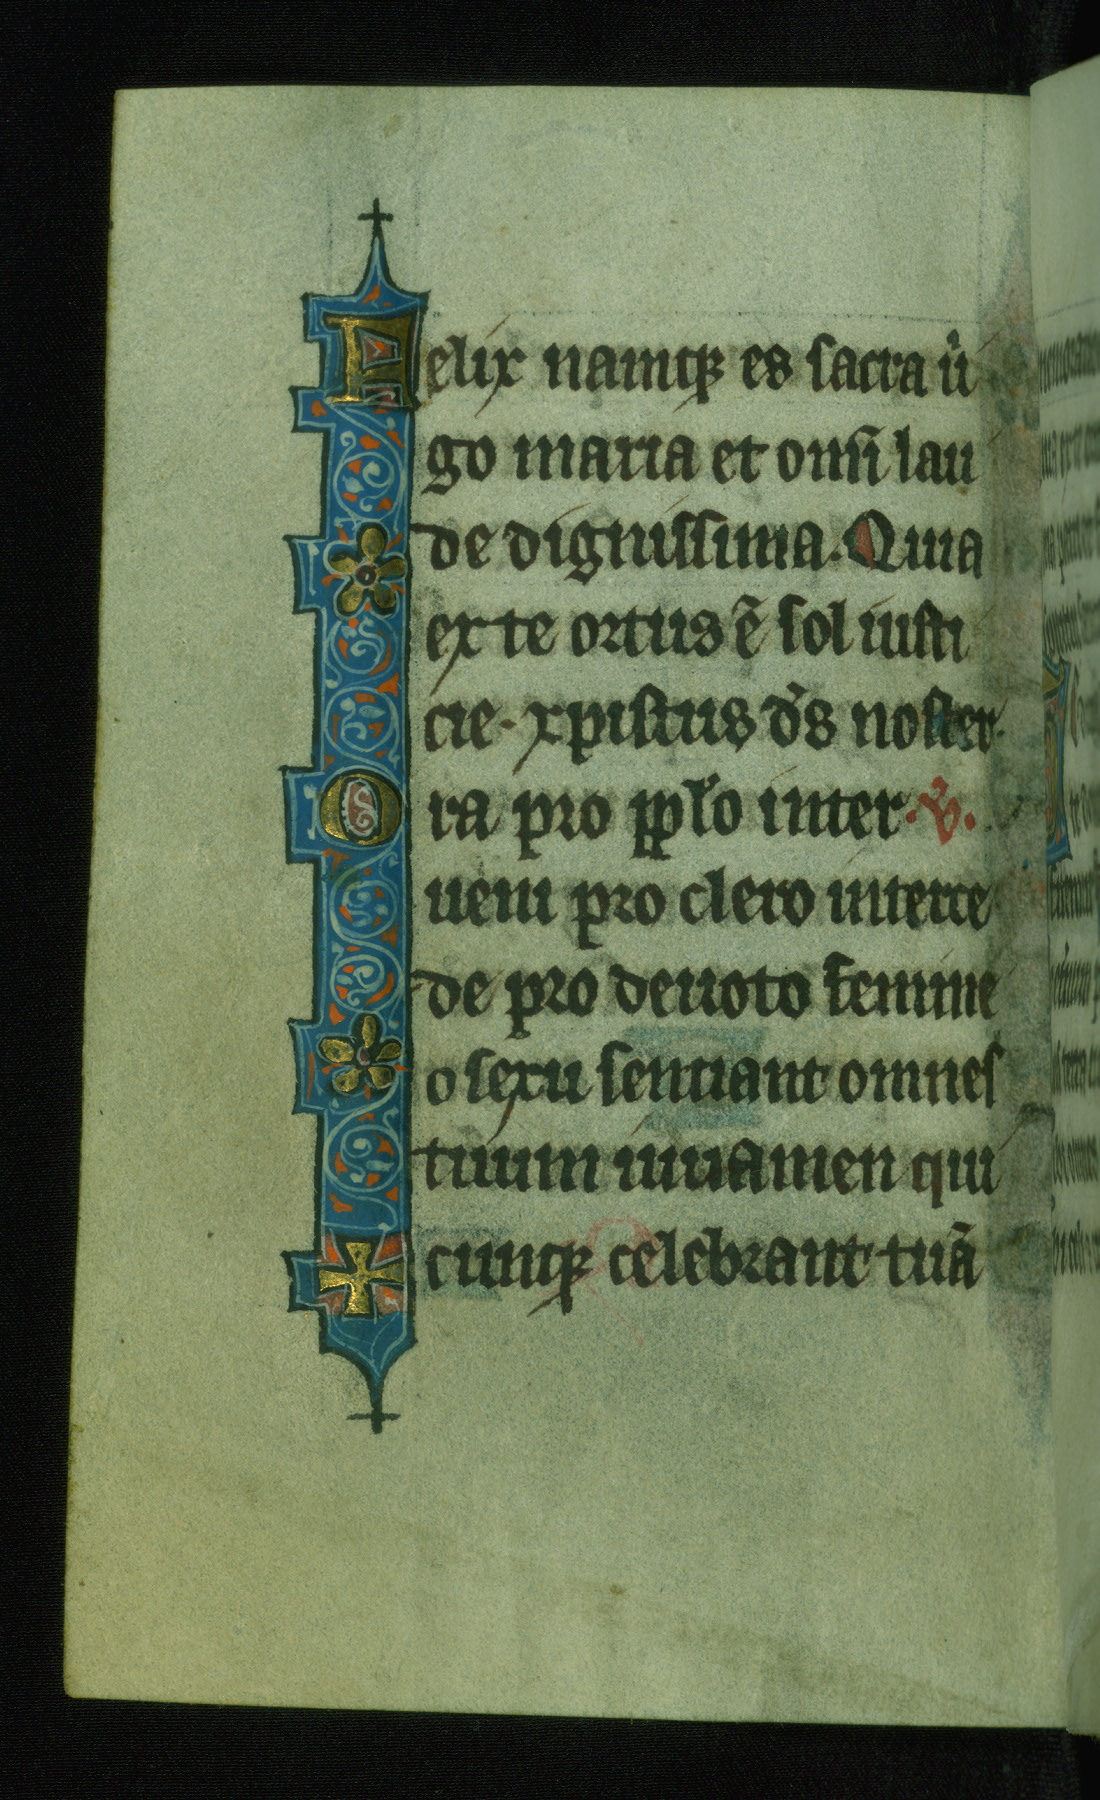 Felix namqꝫ es sacra ũi
go maria et om̃i lau
de dignissima. Quia
ex te ortus ẽ sol iusti
cie. xpistus d̾s noster.
Ora pro pp̾lo inter. ℣.
ueni pro clero interce
de pro deuoto femine
o sexu sentiant omnes
tuum iuuamen qui
cumqꝫ celebrant tuã